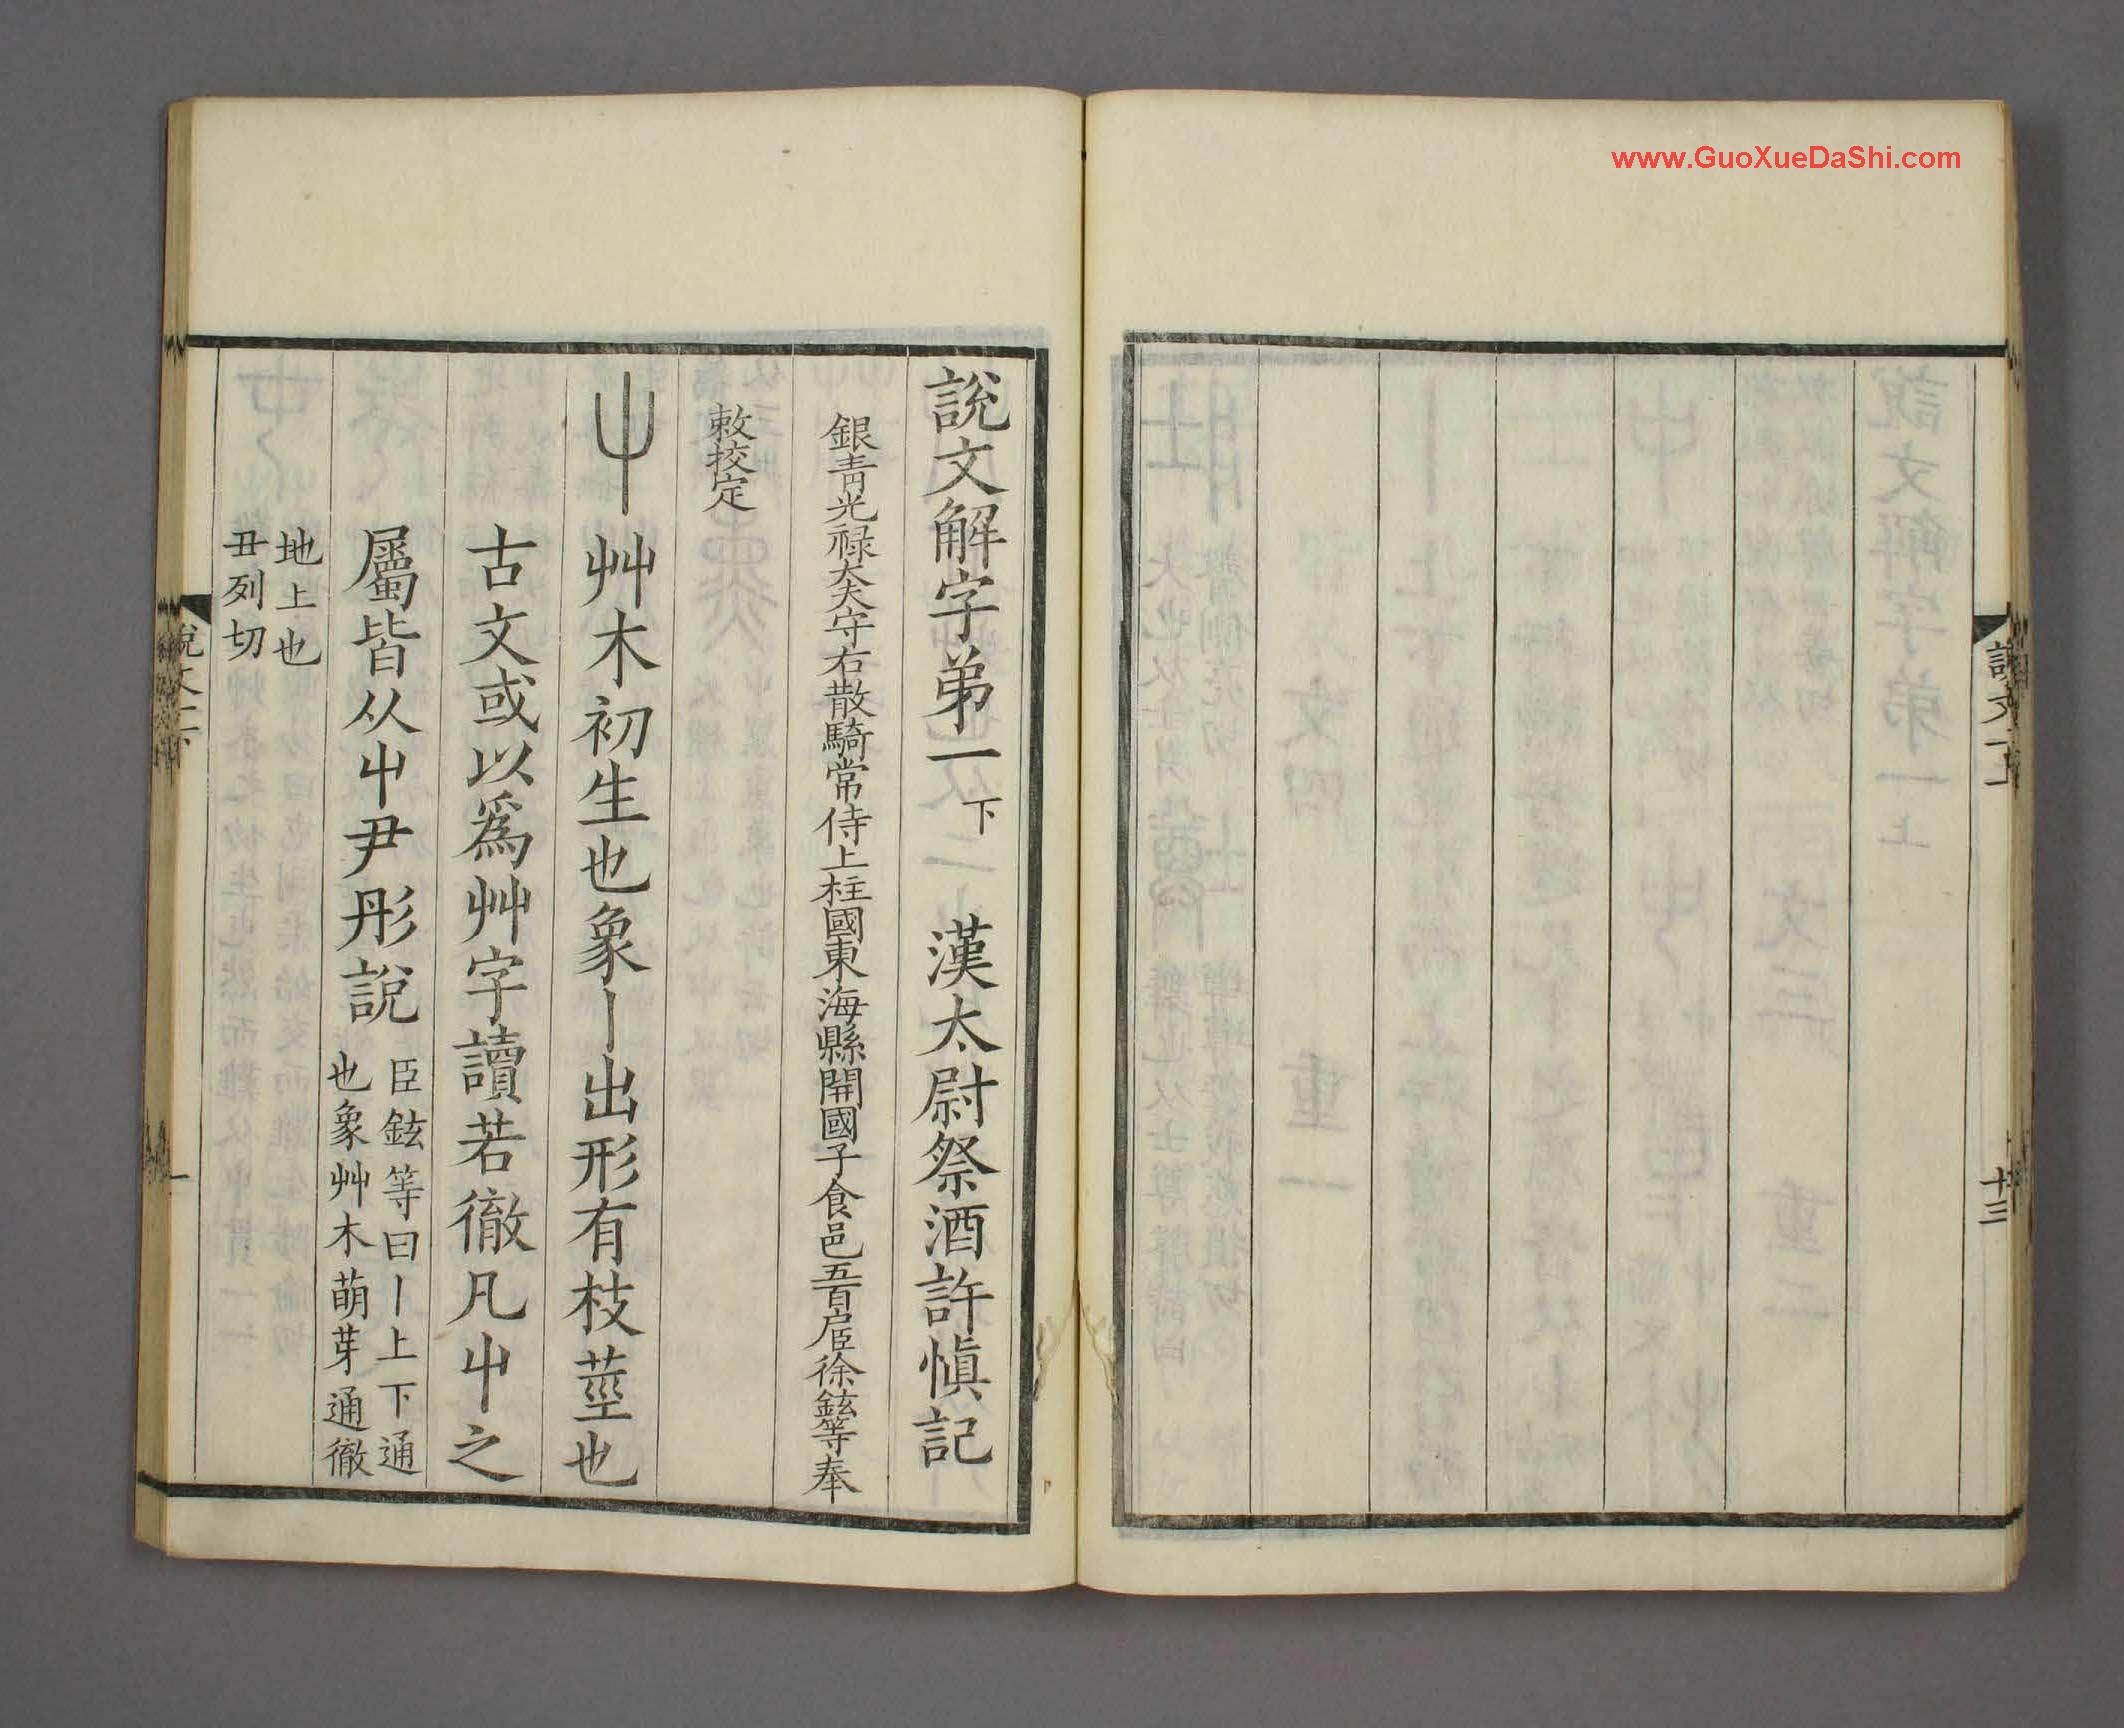 www.GuoXueDaShi.com
說文一上
十三
說文解字弟一下 漢太尉祭酒許愼記
銀青光祿大夫守右散騎常侍上柱國東海縣開國子食邑五百戶臣徐鉉等奉
敕挍定
屮 艸木初生也象丨出形有枝莖也
古文或以爲艸字讀若徹凡屮之
屬皆从屮尹彤說 臣鉉等曰丨上下通
也象艸木萌芽通徹
地上也
丑列切
說文一下
一